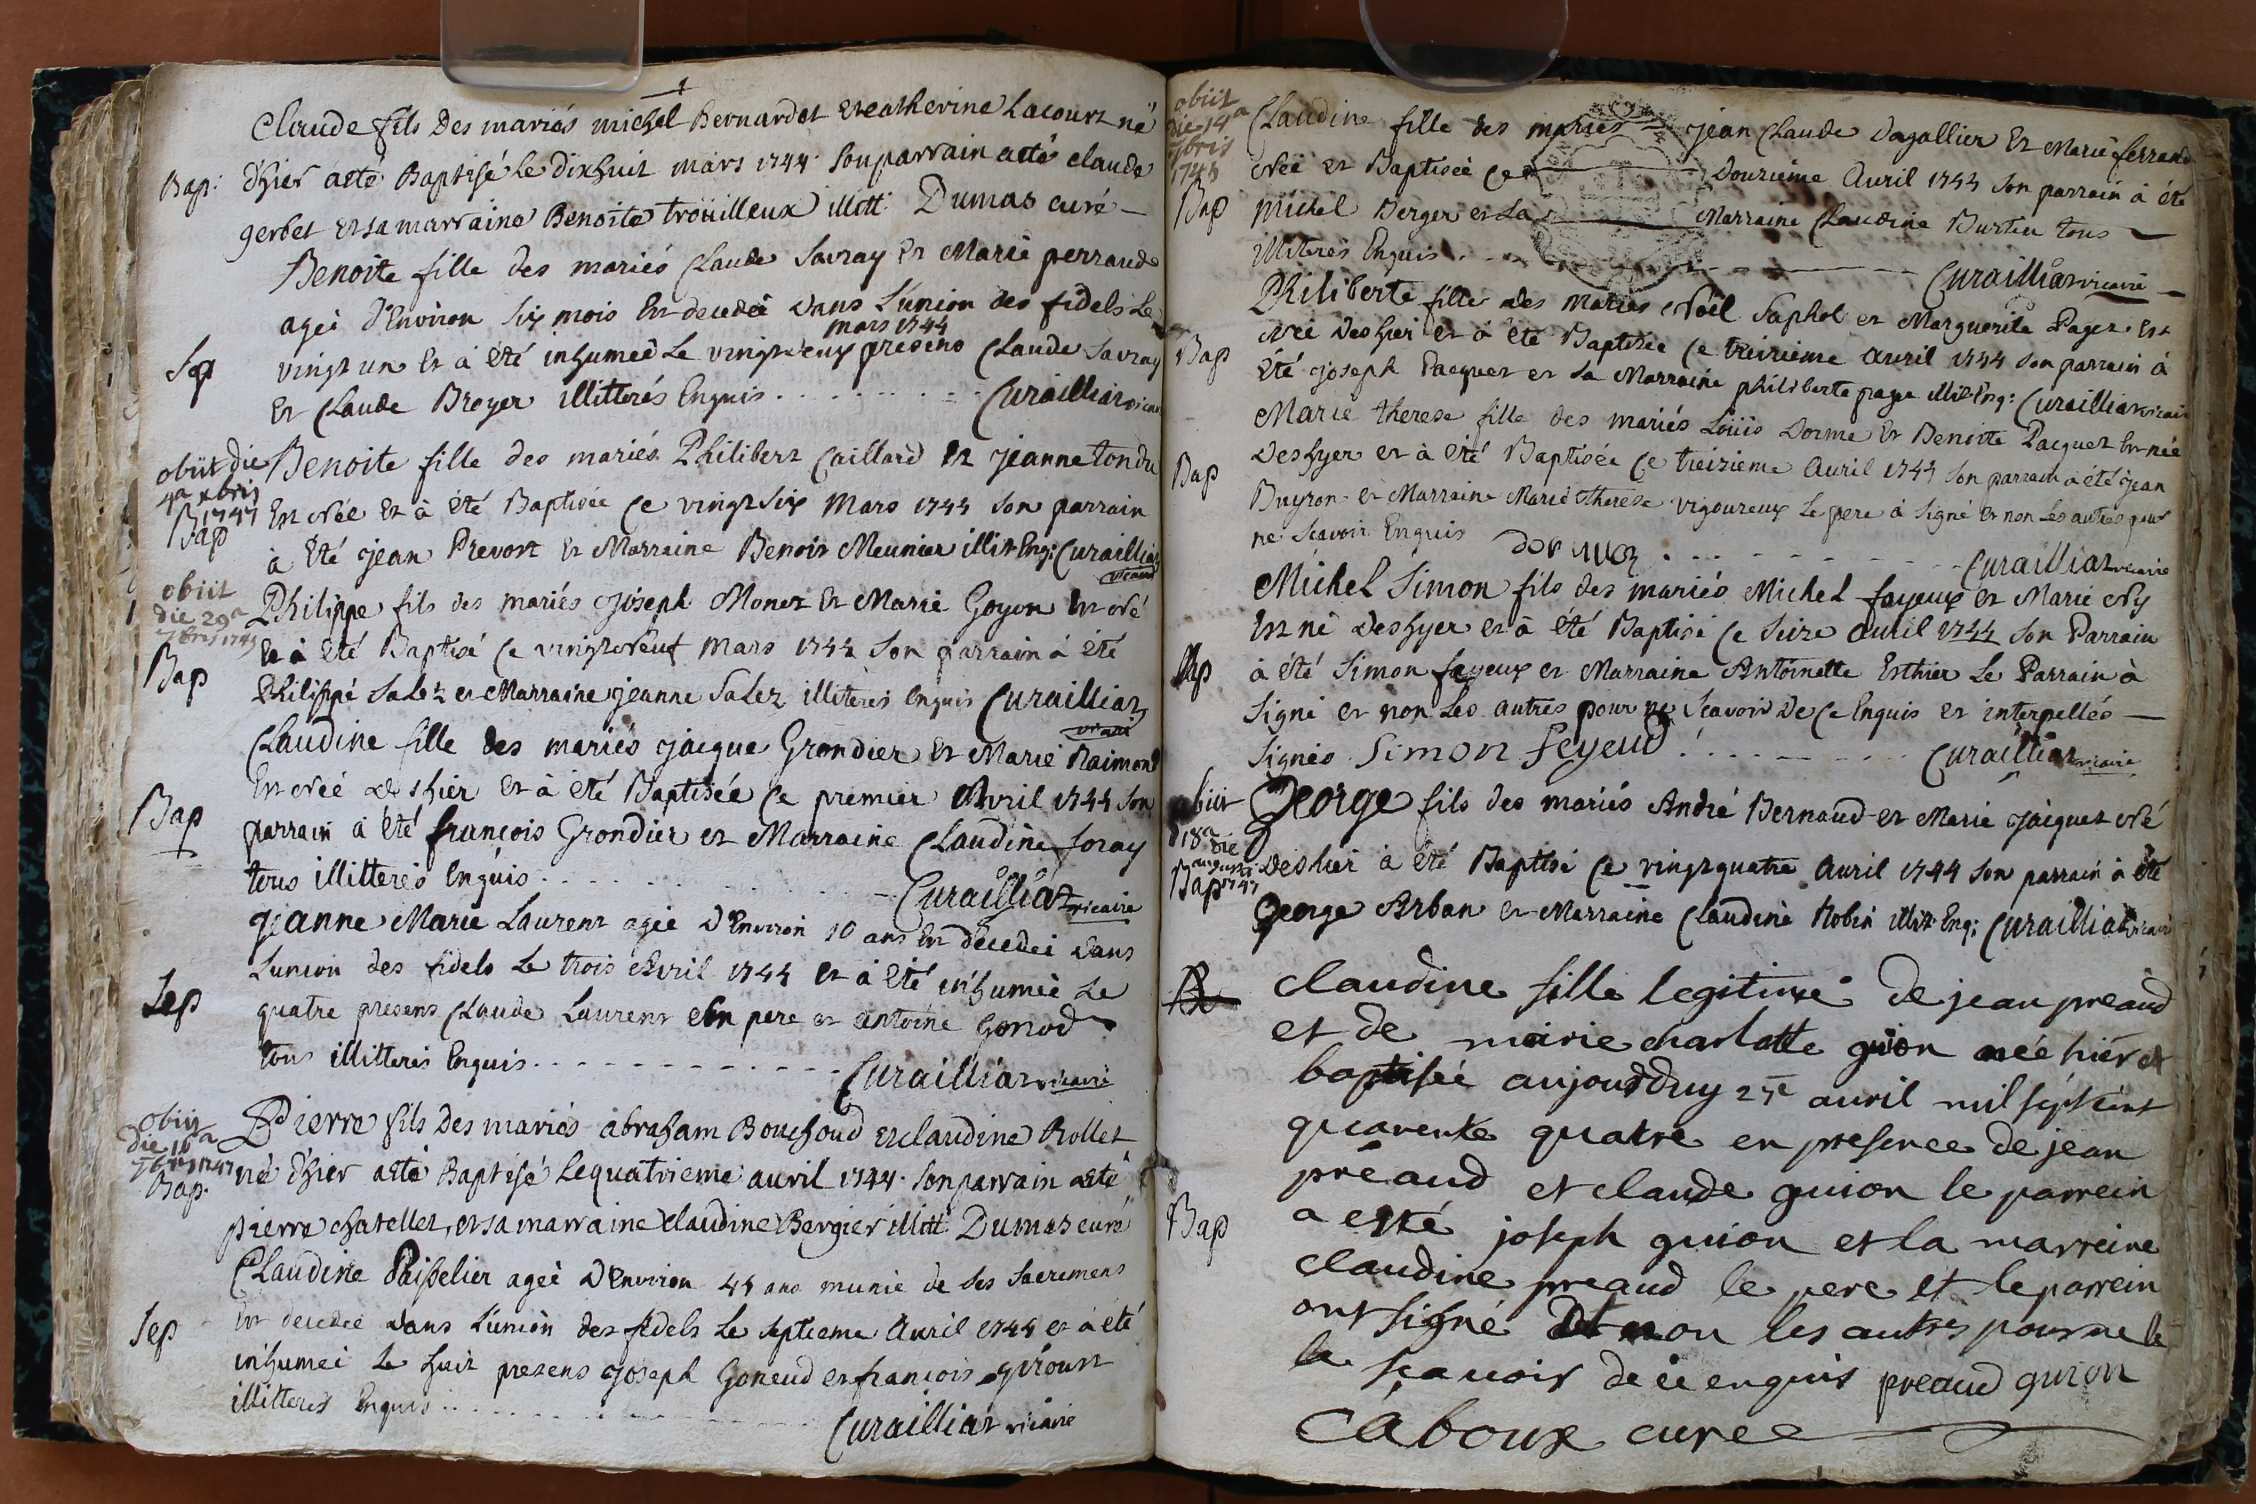 Claude fils Des mariés michel Bernardet et catherine Lacourt né
Bap: d'hier a eté Baptisé le dixhuit mars 1744. son parrain a eté claude
gerbet et sa marraine Benoite troüilleux illitt: Dumas curé
Benoite fille des mariés Claude Savray et Marie perraud
ageé d'Environ six mois Est decedeé dans L'union des fidels le
mars 1744
Sep vingt un et à été inhumeé Le vingtdeux presens Claude Savray
et Claude Broyer illitterés Enquis . . . . . . . . . Curailliat vicaire
obiit die Benoite fille des mariés Philibert Caillard et jeanne tondu
4a xbris
1747 Est née et à été Baptisée Ce vingt six Mars 1744 son parrain
Bap
à été jean Prevost et Marraine Benoit Meunier illit Enq: Curailliat
vicaire
obiit
die 29a
7bris 1745
Philippe fils des mariés joseph Monet et Marie Goyon Est né
et à été Baptisé Ce vingtneuf Mars 1744 son parrain à été
Bap
Philippe Salez et Marraine jeanne Salez illiterés Enquis Curailliat
vicaire
Claudine fille des mariés jacque Grondier et Marie Raimond
Est neé deshier et à été Baptisée Ce premier Avril 1744 son
Bap parrain à été françois Grondier et Marraine Claudine foray
tous illitterés Enquis . . . . . . . . Curailliat vicaire
jeanne Marie Laurent ageé d'Environ 10 ans Est décedeé dans
Lunion des fidels Le trois Avril 1744 et à été inhumeé Le
Sep quatre presens Claude Laurent son pere et antoine Gonod
tous illitterés Enquis . . . . . . . . Curailliat vicaire
obiit
die 10a
7bris 1747
Bap.
Pierre fils Des mariés abraham Bouchoud et claudine Rollet
né d'hier a eté Baptisé le quatrieme avril 1744. son parrain a eté
pierre chatellet, et sa marraine claudine Bergier illitt: Dumas curé
Claudine Paisselier ageé d'Environ 45 ans munie de ses sacremens
Sep Est decedeé dans L'union des fidels Le septieme Avril 1744 et à été
inhumeé Le huit presens joseph Goneud et françois girourt
illitterés Enquis . . . . . . . . Curailliat vicaire
obiit
die 14a
7bris
1745
Claudine fille des mariés jean Claude Dagallier et Marie ferrand
neé et Baptiseé Ce Douzieme Avril 1744 son parrain à été
Bap Michel Berger et La Marraine Claudine Burtin tous
illiterés Enquis . . . . Curailliat vicaire
Philiberte fille des Mariés Noël Saphol et Marguerite Paget Est
Bap neé deshier et à été Baptisée Ce treizieme avril 1744 son parrain à
été joseph Pacquet et La Marraine philiberte paget illit Enq: Curailliat vicaire
Marie therese fille des mariés Loüis Dorme et Benoite Pacquet Est née
Bap Deshyer et à été Baptisée Ce treizieme Avril 1744 son parrain à été jean
Buyron et Marraine Marie therese vigoureux Le pere à signé et non Les autres pour
ne Scavoir Enquis . . . . . . . . Curailliat vicaire
Michel Simon fils des mariés Michel fayeux et Marie Ny
Est né Deshyer et à été Baptisé Ce Seize avril 1744 son Parrain
Bap à été Simon fayeux et Marraine Antoinette Esthier Le Parrain à
signé et non Les autres pour ne Scavoir De Ce Enquis et interpellés
signés Simon feyeux . . . . . . Curailliat vicaire
obiit
18a die
augusti
1747
Bap
George fils des mariés André Bernaud et Marie jaiquet né
Deshier à été Baptisé Ce vingtquatre Avril 1744 son parrain à été
George Arban et Marraine Claudine Robin illit Enq: Curailliat vicaire
claudine fille legitime de jean preaud
et de marie charlotte guion née hiér et
baptiseé aujourdduy 25e avril mil séptcent
quarente quatre en presence de jean
préaud et claude guion le parrein
Bap a esté joseph guion et la marreine
claudine preaud le pere et le parrein
ont signé et non les autres pour ne le
le scavoir de ce enquis preaud guion
Caboux curé